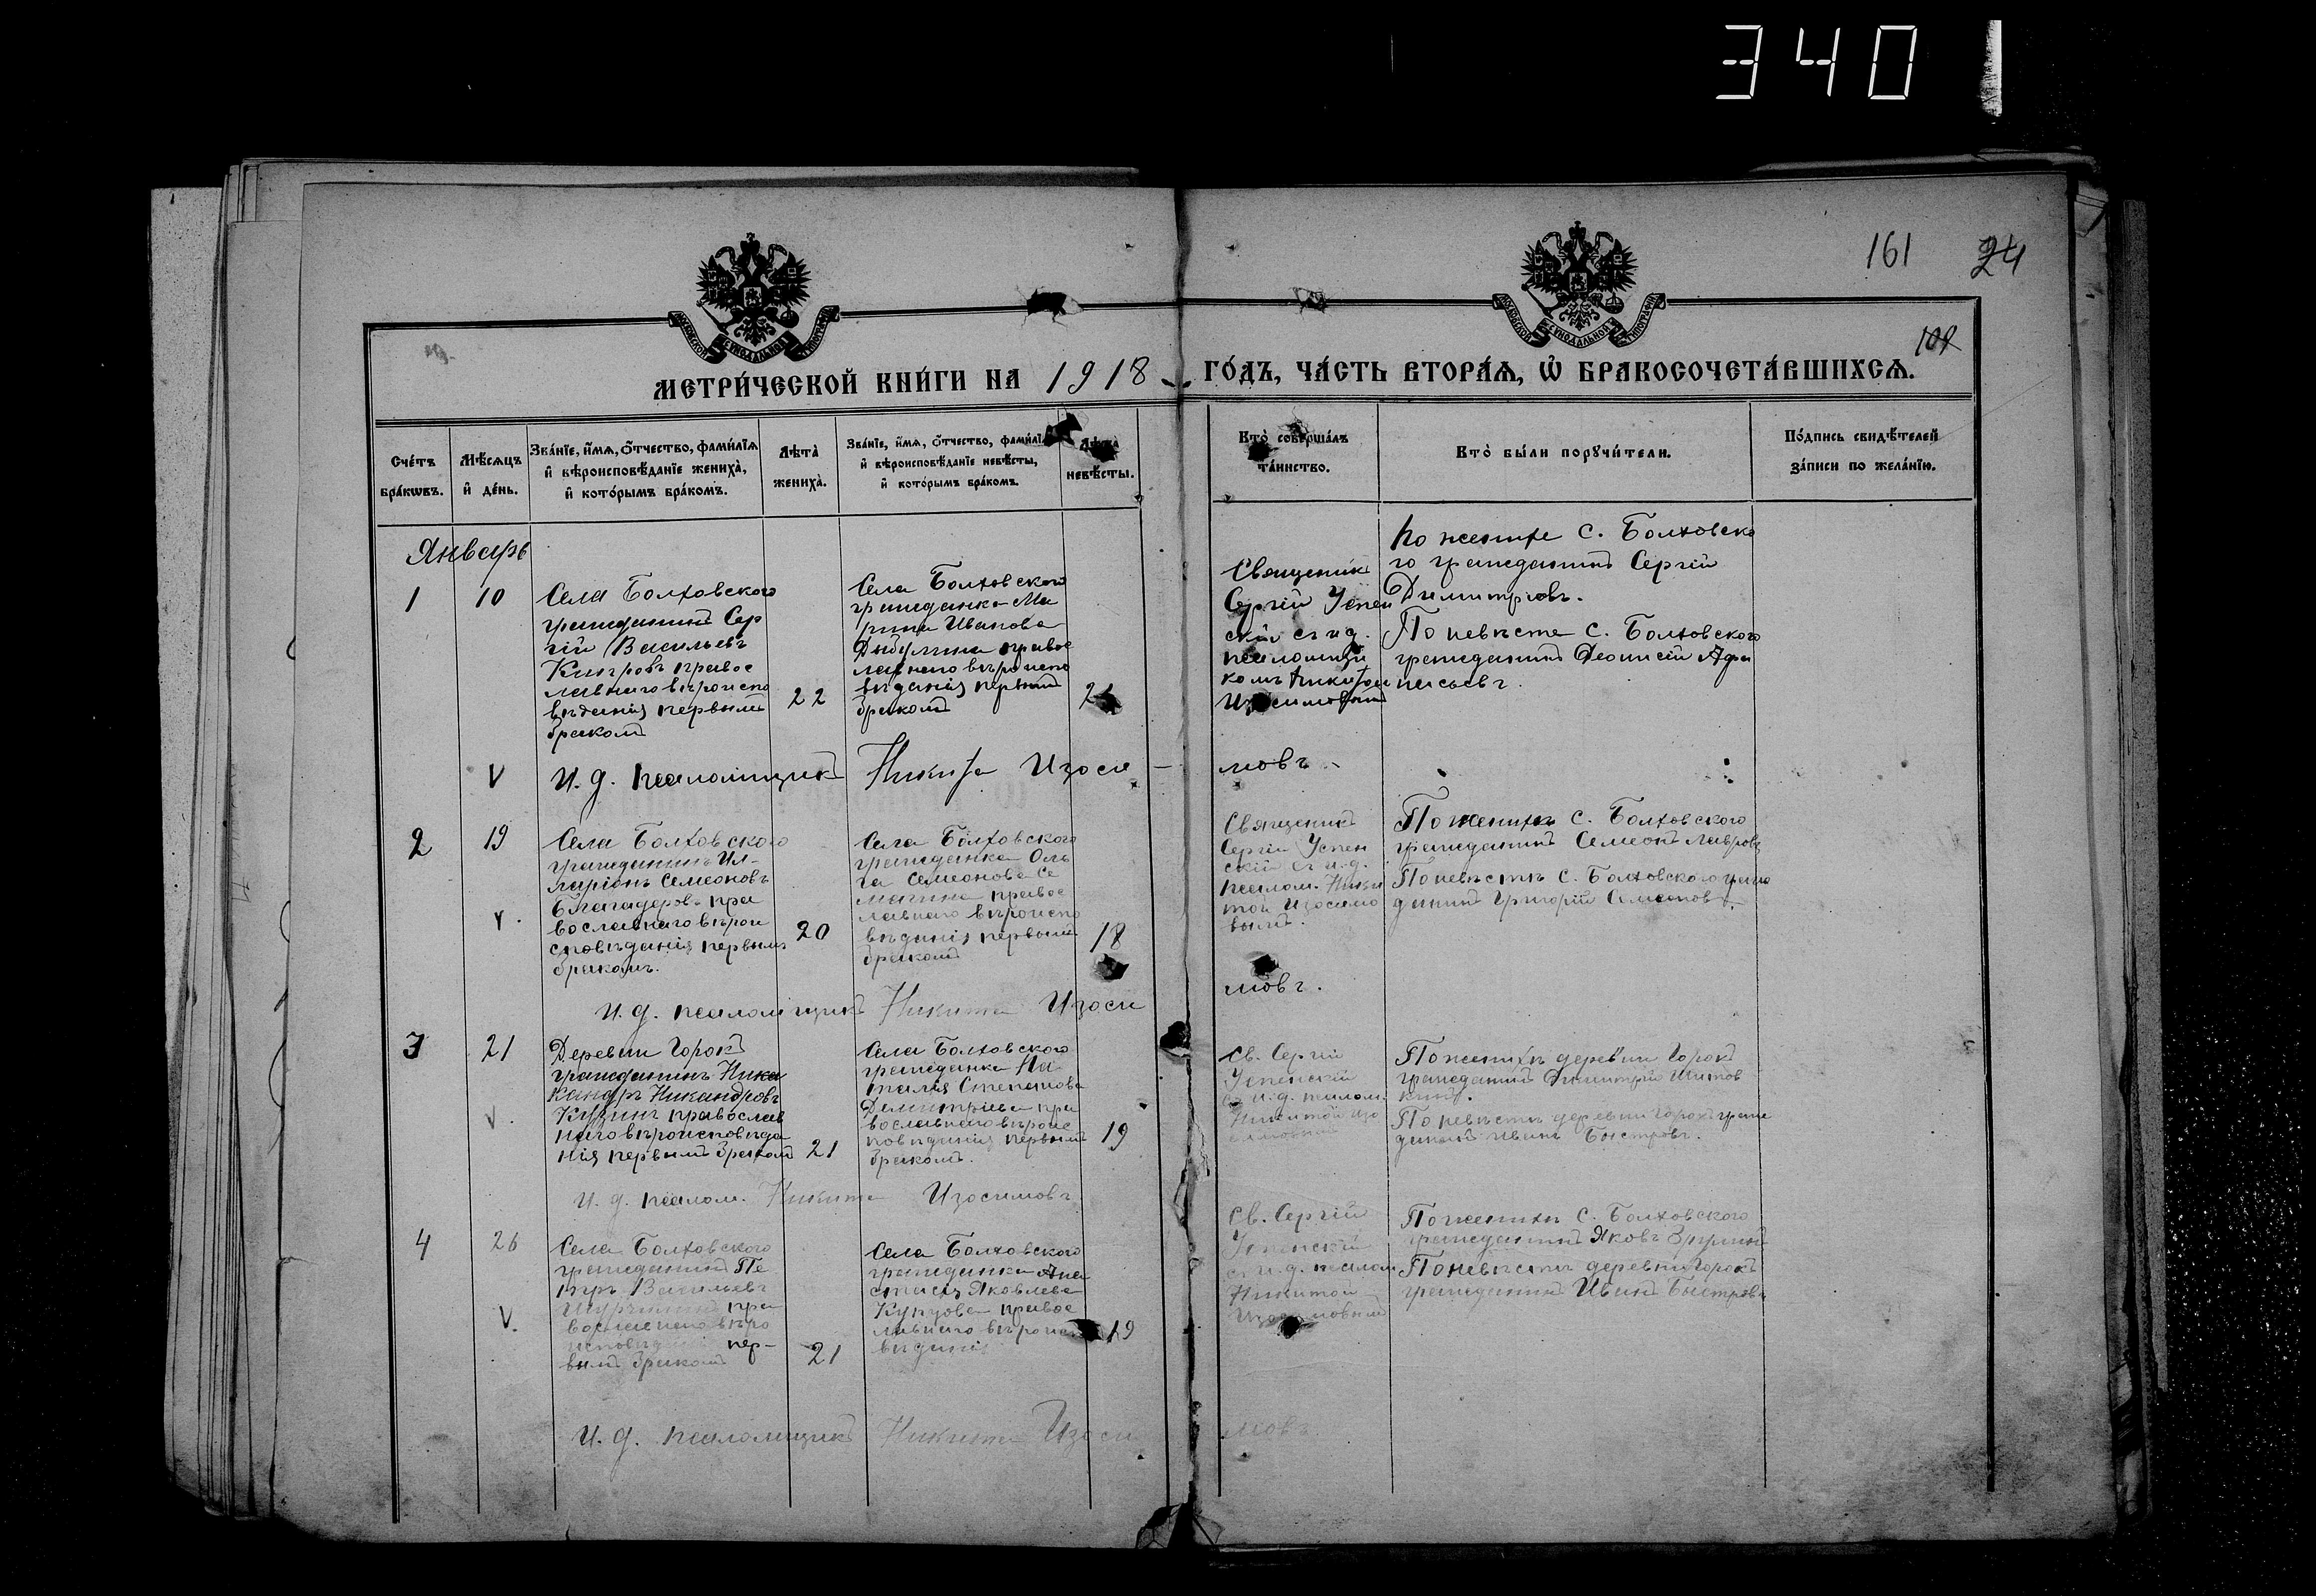 340
161 24
МОСКОВСКОЙ СѴНОДАЛЬНОЙ ТИПОГРАФІИ
МОСКОВСКОЙ СѴНОДАЛЬНОЙ ТИПОГРАФІИ
МЕТРИ́ЧЕСКОЙ КНИ́ГИ НА 1918 ГО́ДЪ, ЧА́СТЬ ВТОРА́Я, Ѡ БРАКОСОЧЕТА́ВШИХСѦ.
Сче́тъ бра́кѡвъ.
Мѣ́сяцъ и де́нь.
Зва́нїе, и́мя, о́тчество, фами́лїя
и вѣроисповѣ́данїе жениха̀,
и кото́рымъ бра́комъ.
Лѣта̀ жениха̀.
Зва́нїе, и́мя, о́тчество, фами́лї
и вѣроисповѣ́данїе невѣ́сты,
и кото́рымъ бра́комъ.
невѣ́сты.
Кто̀ соверша́лъ
та́инство.
Кто̀ бы́ли порꙋчи́тели.
По́дпись свидѣ́телей
за́писи по жела́нїю.
Январь
1
10
Села Болховского
гражданинъ Сер
гій Васильевъ
правос
лавнаго вѣроиспо
вѣданія первымъ
бракомъ
22
Села Болховского
гражданка Ма
рина Иванова
правос
лавнаго вѣроиспо
вѣданія первымъ
бракомъ
Священникъ
Сергій Успен
скій съ и.д.
псаломщи
комъ Никитой
Изосимовымъ
По женихѣ с. Болховско
го гражданинъ Сергій
Димитріовъ.
По невѣстѣ с. Болховского
гражданинъ Деонисій Афа
насьевъ.
V
И. д. псаломщикъ Никита Изоси - мовъ.
2
19
V.
Села Болховского
гражданинъ Ил-
ларіонъ Семеоновъ
Благадеровъ пра
вославнаго вѣрои
сповѣданія первымъ
бракомъ.
20
Села Болховского
гражданка Оль
га Семеонова Се
магина правос
лавнаго вѣроиспо
вѣданія первымъ
бракомъ
18
Священникъ
Сергій Успен
скій съ и.д.
псалом. Ники
той Изосимо
вымъ.
По женихѣ с. Болховского
гражданинъ Семеонъ Лавровъ
По невѣстѣ с. Болховского граж
данинъ Григорій Семеоновъ.
И. д. псаломщикъ Никита Изоси мовъ.
3
21
V.
Деревни Горокъ
гражданинъ Ника
кандръ Никандровъ
Кузинъ православ
наго вѣроисповѣда
нія первымъ бракомъ
21
Села Болховского
гражданка На
талія Степанова
Демитріева пра
вославнаго вѣроис
повѣданія первымъ
бракомъ.
19
Св. Сергій
Успенскій
съ и.д. псалом.
Никитой Изо
симовымъ
По женихѣ деревни Горокъ
гражданинъ Димитрій
По невѣстѣ деревни Горокъ граж
данинъ Иванъ Быстровъ.
И. д. псалом. Никита Изосимовъ
4
26
V.
Села Болховского
гражданинъ Пе
тръ Васильевъ
пра
вославнаго вѣро
исповѣданія пер-
вымъ бракомъ
21
Села Болховского
гражданка Ана
стасія Яковлева
Купцова правос
лавнаго вѣроиспо
вѣданія
19
Св. Сергій
Успенскій
съ и.д. псалом
Никитой
Изосимовымъ
По женихѣ с. Болховского
гражданинъ Яковъ
По невѣстѣ деревни Горокъ
гражданинъ Иванъ Быстровъ
И. д. псаломщикъ Никита Изоси мовъ